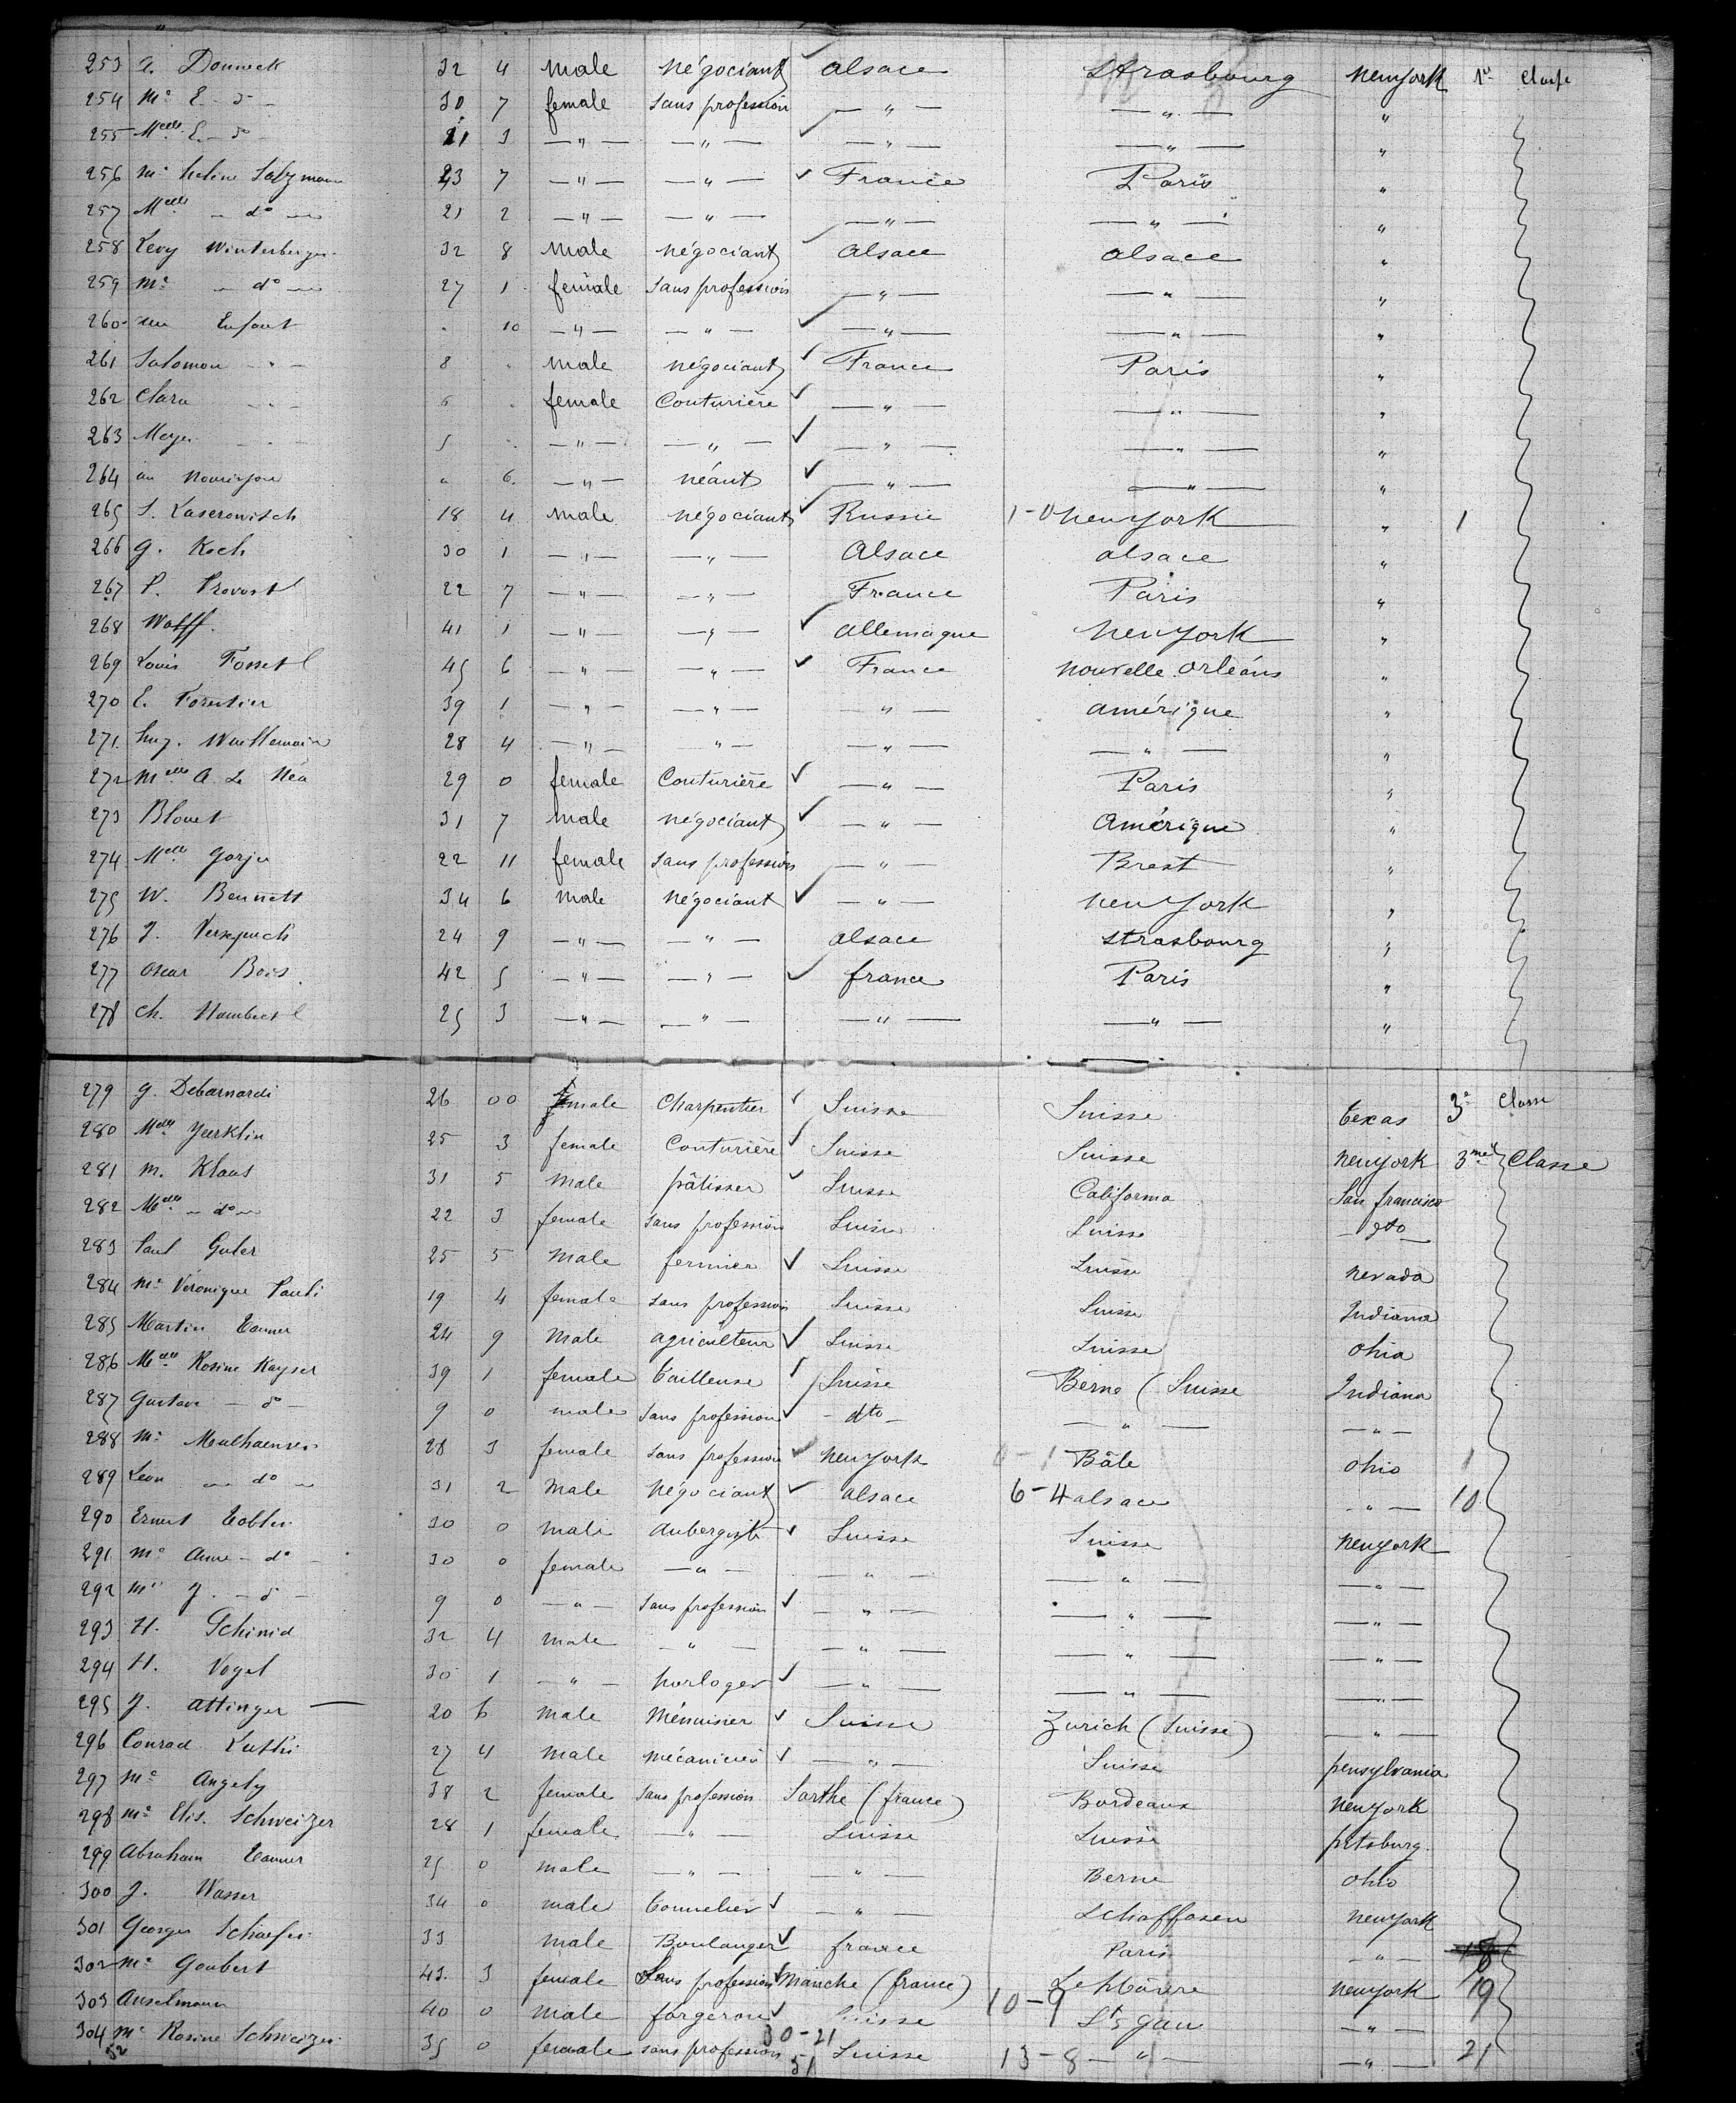 253 Donneck 32 4 male négociant alsace strasbourg newyork 1re Classe
254 Me E - do - 30 7 female sans profession — " — — " — "
255 Melle E - do - 21 3 — " — — " — — " — — " — "
256 Me Salzmann 23 7 — " — — " — France Paris "
257 Melle - do - 21 2 — " — — " — — " — — " — "
258 Levy Winterberger 32 8 male négociant alsace alsace "
259 Me - do - 27 1 female sans profession — " — — " — "
260 un Enfant " 10 — " — — " — — " — — " — "
261 Salomon - " - 8 " male négociant France Paris "
262 Clara - " - 6 " female Couturière — " — — " — "
263 Meyer - " - 5 " — " — — " — — " — — " — "
264 un nourrisson " 6 — " — néant — " — — " — "
265 S. Laserowitsch 18 4 male négociant Russie 1-0 newyork " 1
266 G. Koch 30 1 — " — — " — Alsace alsace "
267 P. Provost 22 7 — " — — " — France Paris "
268 Wolff. 41 1 — " — — " — allemagne newyork "
269 Louis Fosset 45 6 — " — — " — France nouvelle orléans "
270 E. Forestier 39 1 — " — — " — — " — amérique "
271 28 4 — " — " — — " — — " — "
272 Melle A. Le Néa 29 0 female Couturière — " — Paris "
273 Blouet 31 7 male négociant — " — Amérique "
274 Melle Gorju 22 11 female sans profession — " — Brest "
275 W. Bennett 34 6 male négociant — " — new york "
276 J. 24 9 — " — — " — alsace strasbourg "
277 Oscar Bois 42 5 — " — — " — france Paris "
278 Ch. Humbert 25 3 — " — — " — — " — — " — "
279 G. Debarnardi 26 00 male Charpentier Suisse Suisse texas 3e Classe
280 Melle 25 3 female Couturière Suisse Suisse newyork 3me Classe
281 M. Klaus 31 5 male pâtissier Suisse California San francisco
282 Melle - do - 22 3 female sans profession Suisse Suisse - dto -
283 Paul Guler 25 5 male fermier Suisse Suisse nevada
284 Me Véronique Pauli 19 4 female sans profession Suisse Suisse Indiana
285 Martin Tanner 24 9 male agriculteur Suisse Suisse ohio
286 Melle Rosine Kayser 39 1 female tailleuse Suisse Berne (Suisse Indiana
287 Gustave - do - 9 0 male sans profession - dto - — " — — " —
288 Me Mulhauser 28 3 female sans profession newyork 0-1 Bâle ohio 1
289 Leon - do - 31 2 male négociant alsace 6-4 alsace — " — 10
290 Ernest Tobler 30 0 male aubergiste Suisse Suisse newyork
291 Me Anne - do - 30 0 female — " — — " — — " — — " —
292 J. - do - 9 0 — " — sans profession — " — — " — — " —
293 H. Schmid 32 4 male — " — — " — — " — — " —
294 H. Vogel 30 1 — " — horloger — " — — " — — " —
295 J. attinger — 20 6 male Ménuisier Suisse Zurich (Suisse) — " —
296 Conrad Luthi 27 4 male mécanicien — " — Suisse pensylvania
297 Me Angely 38 2 female sans profession Sarthe (france) Bordeaux newyork
298 Me Elis. Schweizer 28 1 female — " — Suisse Suisse pitsburg.
299 Abraham Tanner 25 0 male — " — — " — Berne ohio
300 J. Wasser 34 0 male tonnelier — " — Schaffosen newyork
301 Georges Schaefer 33 male Boulanger france Paris — " — 18
302 Me Goubert 43. 3 female Sans profession Manche (france) Le Hâvre newyork 19
303 Anselmann 40 0 male forgeron Suisse 10-9 St Gau — " —
304 Me Rosine Schweizer 35 0 female sans profession 30-21 Suisse 13-8 — " — — " — 21
52 51